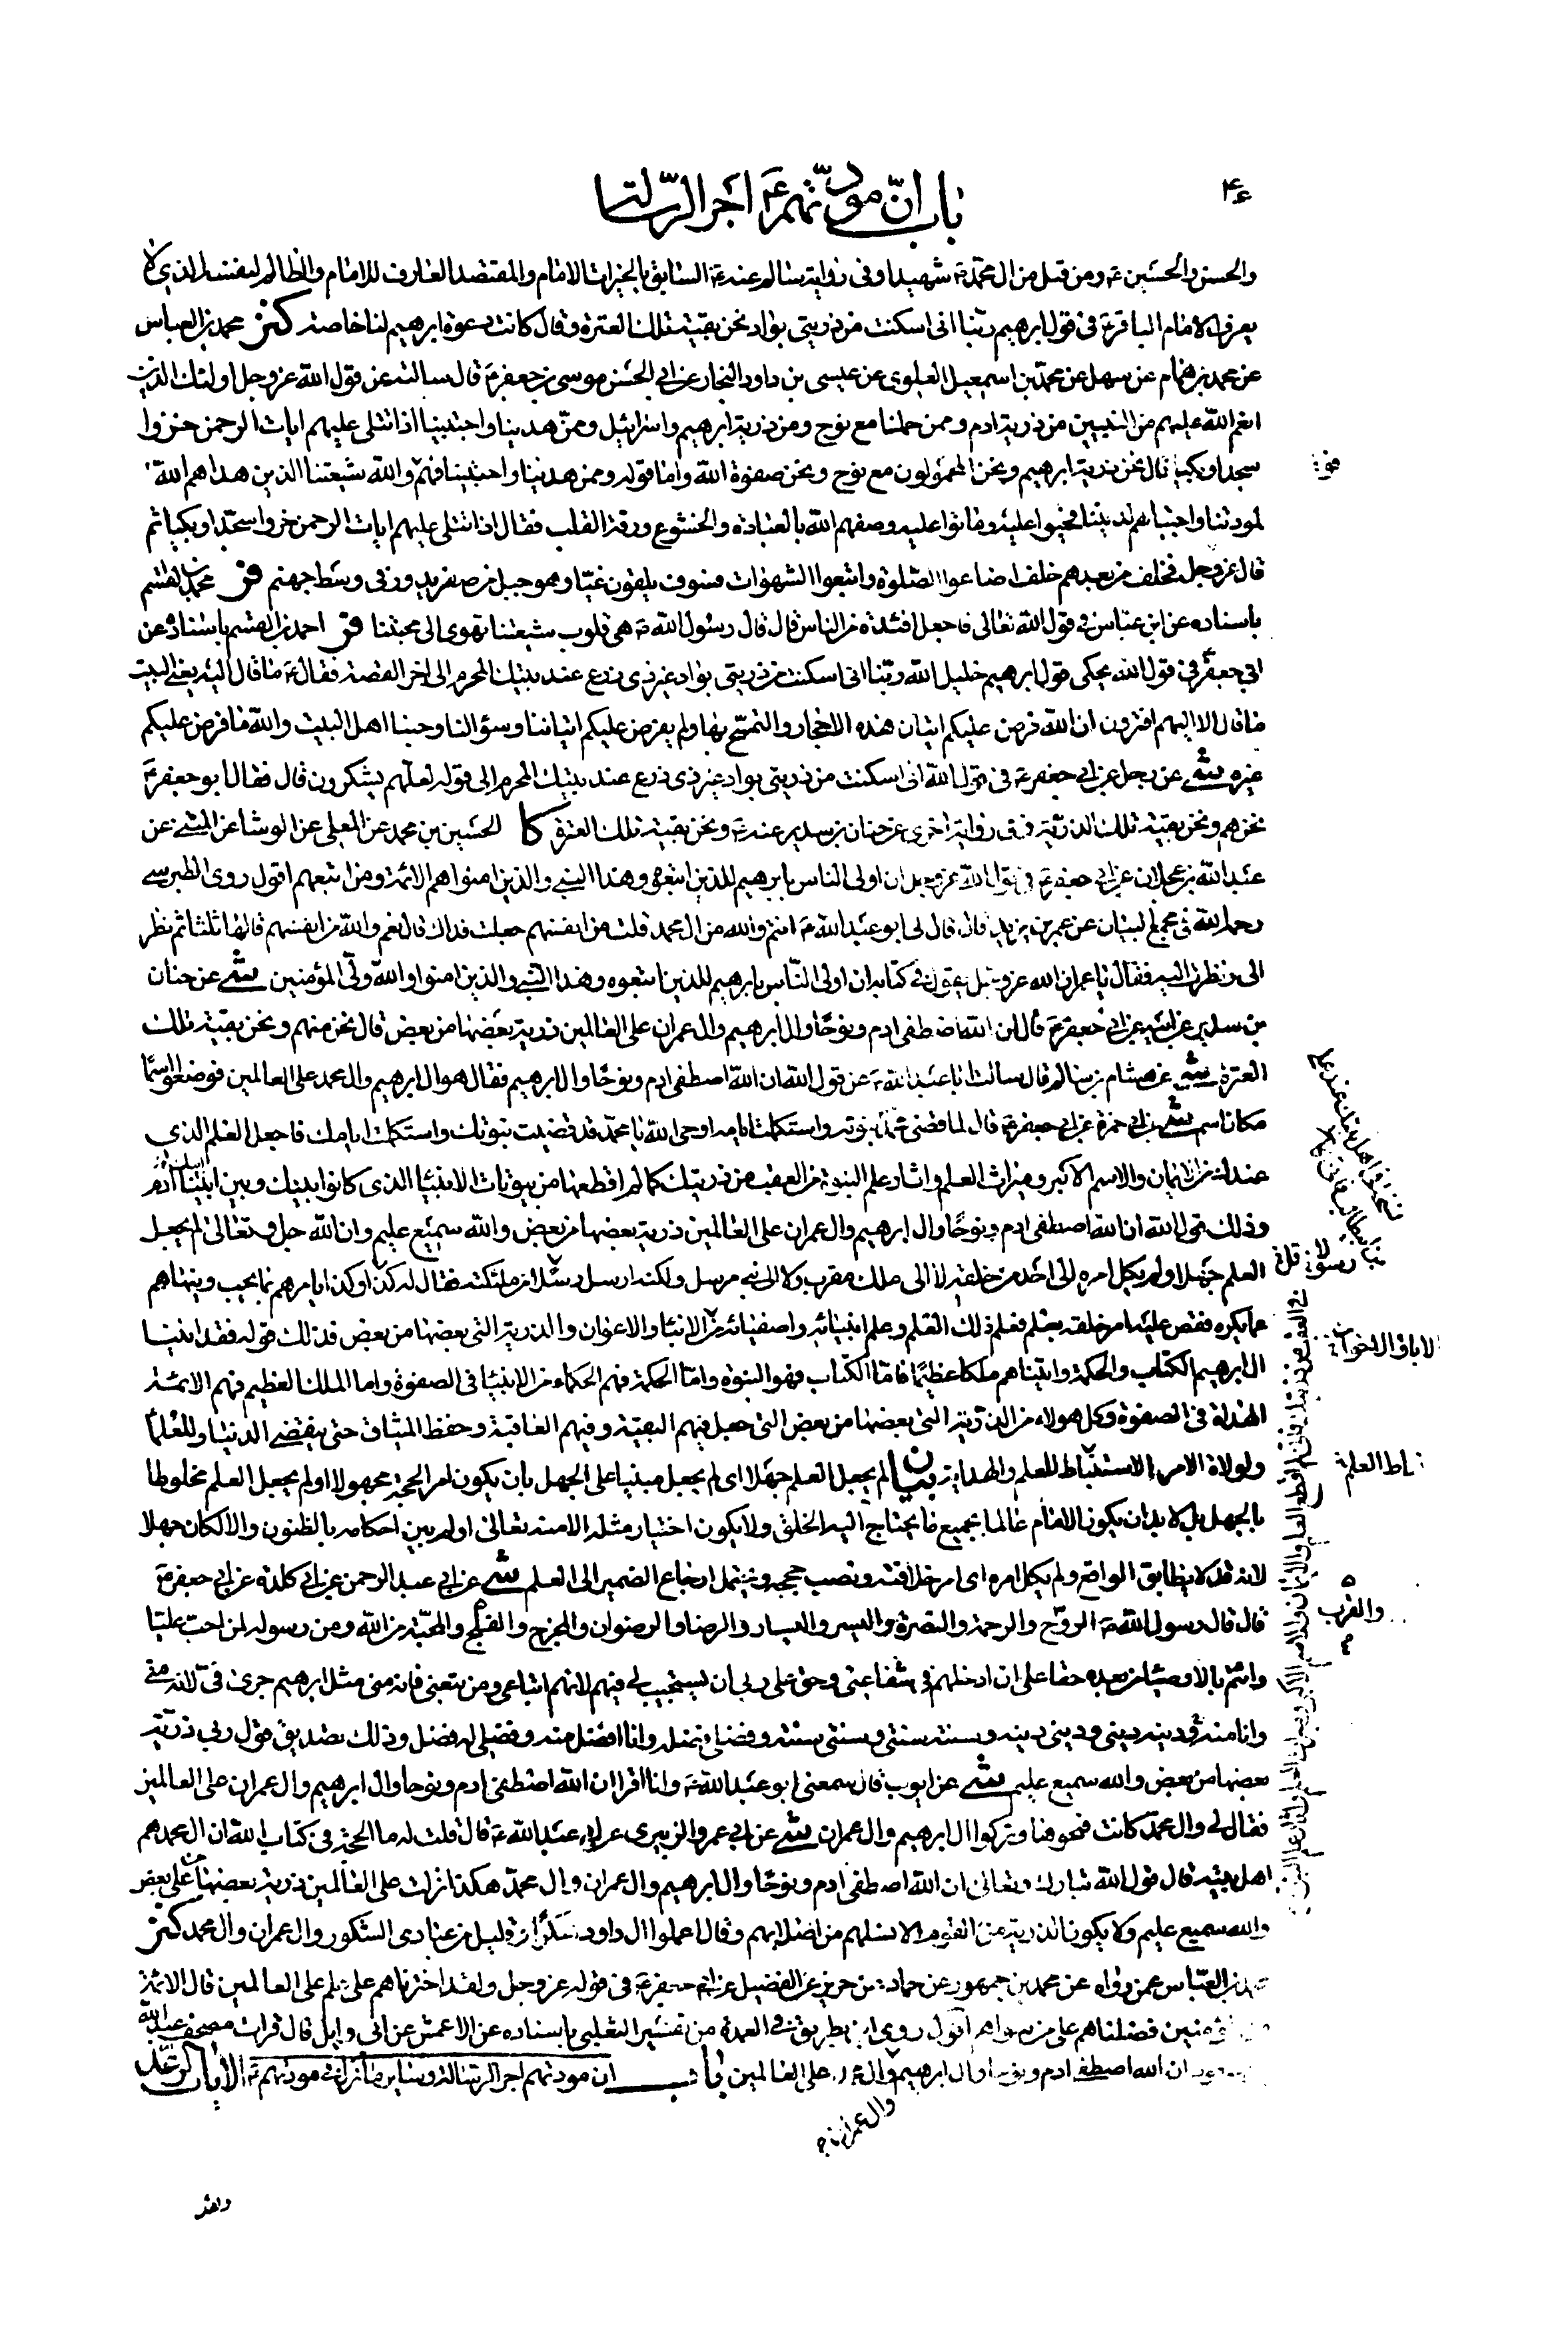 ۴۶
باب انّ مودّتهم ع اجر الرسالة
والحسن والحسين ع ومن قتل من ال محمد ص شهيدا وفى رواية سالم عنه ع السابق بالخيرات الامام والمقتصد العارف للامام والظالم لنفسه الذى لا
يعرف الامام الباقر ع فى قول ابرهيم ربّنا انى اسكنت من ذريتى بواد نحن بقية تلك العترة وقال كانت دعوة ابرهيم لنا خاصة كنز محمد بن العباس
عن محمد بن همام عن سهل عن محمّد بن اسمعيل العلوى عن عيسى بن داود النجار عن ابى الحسن موسى بن جعفر ع قال سالته عن قول الله عز وجل اولئك الذين
انعم الله عليهم من النبيين من ذرية ادم وممن حملنا مع نوح ومن ذرية ابرهيم واسرائيل وممّن هدينا واجتبينا اذا تتلى عليهم ايات الرحمن خروا
سجدا وبكيا قال نحن ذرية ابرهيم ونحن المحمولون مع نوح ونحن صفوة الله واما قوله وممن هدينا واجتبينا فهم والله شيعتنا الذين هداهم الله
لمودتنا واجتباهم لديننا فحيوا عليه وماتوا عليه وصفهم الله بالعبادة والخشوع ورقة القلب فقال اذا تتلى عليهم ايات الرحمن خروا سجّدا وبكيا ثم
قال عز وجل فخلف من بعدهم خلف اضاعوا الصّلوة واتبعوا الشهوات فسوف يلقون غيّا وهو جبل من صفر يدور فى وسط جهنم فر محمد بن القسم
باسناده عن ابن عبّاس فى قول الله تعالى فاجعل افئدة من الناس قال قال رسول الله ص هى قلوب شيعتنا تهوى الى محبتنا فر احمد بن القسم باسناده عن
ابى جعفر ع فى قول الله يحكى قول ابرهيم خليل الله ربّنا انى اسكنت من ذريتى بواد غير ذى زرع عند بيتك المحرم الى اخر القصة فقال ع ما قال اليه يعنى البيت
ما قال الا اليهم افترون ان الله فرض عليكم اتيان هذه الاحجار والتمسّح بها ولم يفرض عليكم اتياننا وسؤالنا وحبنا اهل البيت والله ما فرض عليكم
غيره شى عن رجل عن ابى جعفر ع فى قول الله انى اسكنت من ذريتى بواد غير ذى زرع عند بيتك المحرم الى قوله لعلّهم يشكرون قال فقال ابو جعفر ع
نحن هم ونحن بقية تلك الذريّة وفى رواية اخرى عن حنان بن سدير عنه ع ونحن بقية تلك العترة كا الحسين بن محمد عن المعلى عن الوشا عن المثنى عن
عبد الله بن عجلان عن ابى جعفر ع فى قول الله عز وجل ان اولى الناس بابرهيم للذين اتبعوه وهذا النبى والذين امنوا هم الائمة ومن اتبعهم اقول روى الطبرسى
رحمه الله فى مجمع البيان عن عمر بن يزيد قال قال لى ابو عبد الله ع انتم والله من ال محمد قلت من انفسهم جعلت فداك قال نعم والله من انفسهم قالها ثلثا ثم نظر
الى ونظرت اليه فقال يا عمر ان الله عز وجل يقول فى كتابه ان اولى النّاس بابرهيم للذين اتبعوه وهذا النبى والذين امنوا والله ولىّ المؤمنين شى عن حنان
بن سدير عن ابيه عن ابى جعفر ع قال ان الله اصطفى ادم ونوحا وال ابرهيم وال عمران على العالمين ذرية بعضها من بعض قال نحن منهم ونحن بقية تلك
العترة شى عن هشام بن سالم قال سالت ابا عبد الله ع عن قول الله ان الله اصطفى ادم ونوحا وال ابرهيم فقال هو ال ابرهيم وال محمد على العالمين فوضعوا اسما
مكان اسم شى عن ابى حمزة عن ابى جعفر ع قال لما قضى محمّد نبوته واستكملت ايامه اوحى الله يا محمّد قد قضيت نبوتك واستكملت ايامك فاجعل العلم الذى
عندك من الايمان والاسم الاكبر وميراث العلم واثار علم النبوة من العقب من ذريتك كما لم اقطعها من بيوتات الانبيا الذى كانوا بينك وبين ابينا ادم
وذلك قول الله ان الله اصطفى ادم ونوحا وال ابرهيم وال عمران على العالمين ذرية بعضها من بعض والله سميع عليم وان الله جل وتعالى لم يجعل
العلم جهلا ولم يكل امره الى احد من خلقه لا الى ملك مقرب ولا الى نبى مرسل ولكنه ارسل رسلا من ملئكته فقال له كذا وكذا يامرهم بما يحب وينهاهم
عما يكره فقص عليه امر خلقه بعلم فعلم ذلك العلم وعلم انبيائه واصفيائه من الانبيا والاعوان والذرية التى بعضها من بعض فذلك قوله فقد اتينا
ال ابرهيم الكتاب والحكمة واتيناهم ملكا عظيما فامّا الكتاب فهو النبوة وامّا الحكمة فهم الحكماء من الانبيا فى الصفوة واما الملك العظيم فهم الائمة
الهداة فى الصفوة وكل هولاء من الذرية التى بعضها من بعض التى جعل فيهم البقية وفيهم العاقبة وحفظ الميثاق حتى ينقضى الدنيا وللعلما
ولولاة الامر الاستنباط للعلم والهداية بيان لم يجعل العلم جهلا اى لم يجعل مبنيا على الجهل بان يكون امر الحجة مجهولا او لم يجعل العلم مخلوطا
بالجهل بل لا بد ان يكون الامام عالما بجميع ما يحتاج اليه الخلق ولا يكون اختيار مثله الا منه تعالى او لم يبن احكامه بالظنون والا لكان جهلا
لانه قد لا يطابق الواقع ولم يكل امره اى امر خلافته ونصب حججه ويحتمل ارجاع الضمير الى العلم شى عن ابى عبد الرحمن عن ابى كلدة عن ابى جعفر ع
قال قال رسول الله ص الروح والرحمة والنصرة واليسر واليسار والرضا والرضوان والمخرج والفلج والمحبّة من الله ومن رسوله لمن احب عليّا
وائتم بالاوصيا من بعده حقا على ان ادخلهم فى شفاعتى وحق على ربى ان يستجيب لى فيهم لانهم اتباعى ومن تبعنى فانه منى مثل ابرهيم جرى فىّ لانه منى
وانا منه ودينه دينى ودينى دينه وسنته سنتى وسنتى سنته وفضلى فضله وانا افضل منه وفضلى له فضل وذلك تصديق قول ربى ذريّة
بعضها من بعض والله سميع عليم شى عن ايوب قال سمعنى ابو عبد الله ع وانا اقرا ان الله اصطفى ادم ونوحا وال ابرهيم وال عمران على العالمين
فقال لى وال محمّد كانت فمحوها وتركوا ال ابرهيم وال عمران شى عن ابى عمرو الزبيرى عن ابى عبد الله ع قال قلت له ما الحجة فى كتاب الله ان ال محمد هم
اهل بيته قال قول الله تبارك وتعالى ان الله اصطفى ادم ونوحا وال ابرهيم وال عمران وال محمّد هكذا نزلت على العالمين ذرية بعضها من بعض
والله سميع عليم ولا يكون الذرية من القوم الا نسلهم من اصلابهم وقال اعملوا ال داود شكرا وقليل من عبادى الشكور وال عمران وال محمد كنز
محمد بن العبّاس عمن رواه عن محمد بن جمهور عن حماد بن حريز عن الفضيل عن ابى جعفر ع فى قوله عز وجل ولقد اخترناهم على علم على العالمين قال الائمة
من المؤمنين فضلناهم على من سواهم اقول روى ابن بطريق فى العمدة من تفسير الثعلبى باسناده عن الاعمش عن ابى وايل قال قرات مصحف عبد الله
ان الله اصطفى ادم ونوحا وال ابرهيم وال على العالمين باب ان مودتهم اجر الرسالة وساير ما نزل فى مودتهم ع الايات الرعد
وال عمران
لاباء والاخوان
والقرب
ولقد